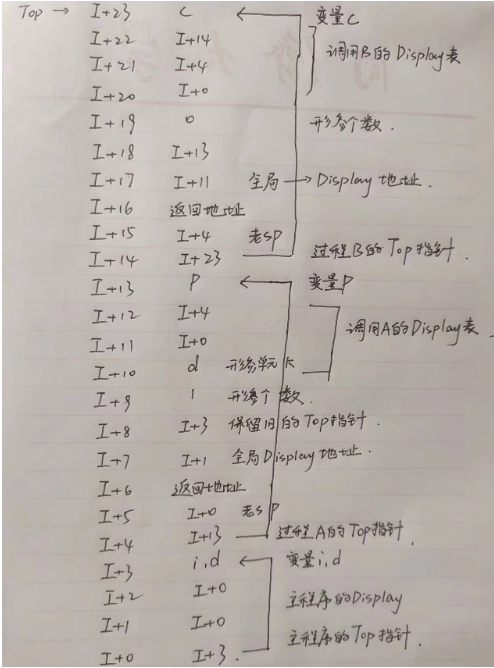 Top → I+23 C ← 变量C
I+22 I+14
I+21 I+4 调用B的Display表
I+20 I+0
I+19 0 形参个数.
I+18 I+13
I+17 I+11 全局 → Display 地址.
I+16 返回地址
I+15 I+4 老SP
I+14 I+23 过程B的Top指针.
I+13 P ← 变量P
I+12 I+4
调用A的Display表.
I+11 I+0
I+10 d 形参单元K
I+9 1 形参个数.
I+8 I+3 保留旧的Top指针.
I+7 I+1 全局Display地址.
I+6 返回地址
I+5 I+0 老SP
I+4 I+13 过程A的Top指针
I+3 i,d ← 变量i,d
I+2 I+0 主程序的Display
I+1 I+0
I+0 I+3. 主程序的Top指针.